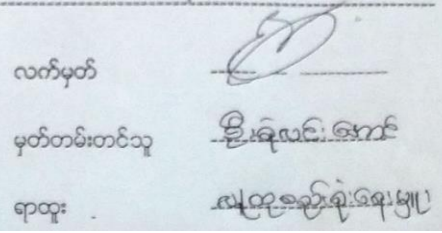 လက်မှတ်
မှတ်တမ်းတင်သူ ဦးရဲလင်းအောင်
ရာထူး လူထုစည်းရုံးရေးမှူး